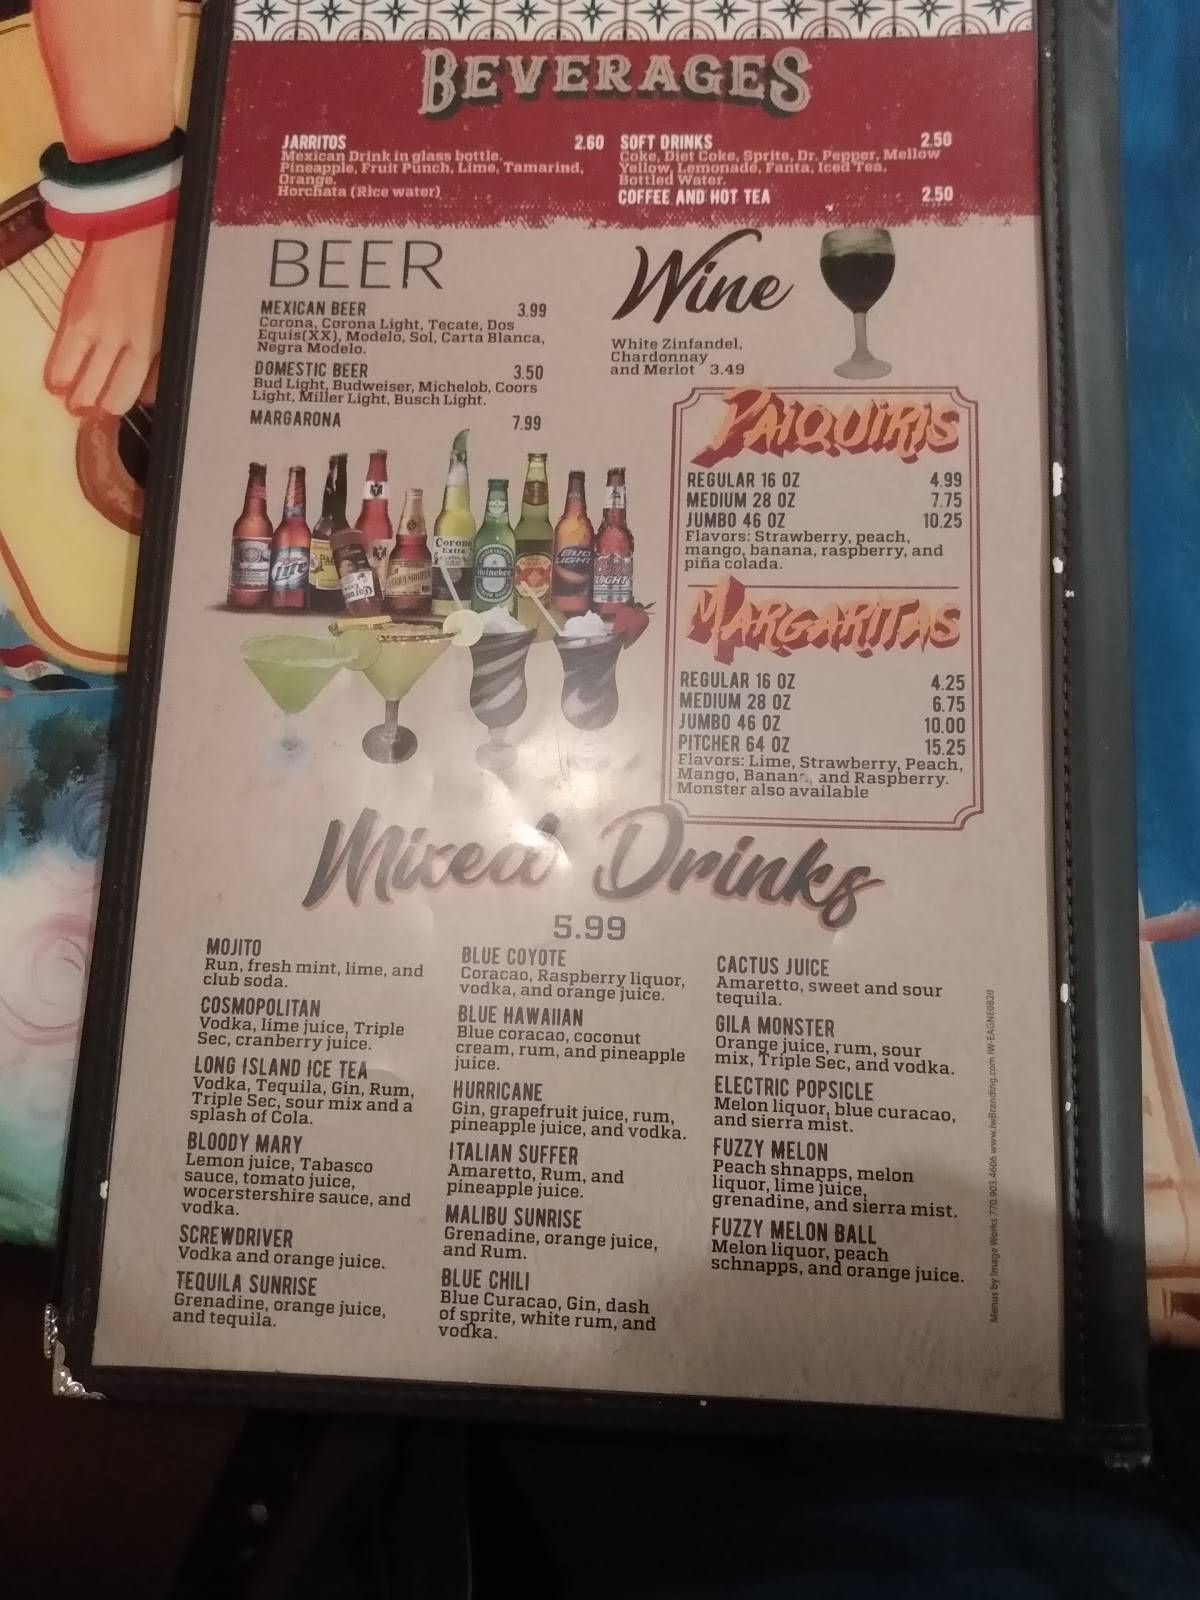 BEVERAGES
JARRITOS 2.60
Mexican Drink in glass bottle.
Pineapple, Fruit Punch, Lime, Tamarind,
Orange.
Horchata (Rice water)
SOFT DRINKS 2.50
Coke, Diet Coke, Sprite, Dr. Pepper, Mellow
Yellow, Lemonade, Fanta, Iced Tea,
Bottled Water.
COFFEE AND HOT TEA 2.50
BEER
MEXICAN BEER 3.99
Corona, Corona Light, Tecate, Dos
Equis(XX), Modelo, Sol, Carta Blanca,
Negra Modelo.
DOMESTIC BEER 3.50
Bud Light, Budweiser, Michelob, Coors
Light, Miller Light, Busch Light.
MARGARONA 7.99
Wine
White Zinfandel,
Chardonnay
and Merlot 3.49
DAIQUIRIS
REGULAR 16 OZ 4.99
MEDIUM 28 OZ 7.75
JUMBO 46 OZ 10.25
Flavors: Strawberry, peach,
mango, banana, raspberry, and
piña colada.
MARGARITAS
REGULAR 16 OZ 4.25
MEDIUM 28 OZ 6.75
JUMBO 46 OZ 10.00
PITCHER 64 OZ 15.25
Flavors: Lime, Strawberry, Peach,
Mango, Banana, and Raspberry.
Monster also available
Lite
Corona
Extra
Heineken
BUD
LIGHT
Mixed Drinks
5.99
MOJITO
Run, fresh mint, lime, and
club soda.
COSMOPOLITAN
Vodka, lime juice, Triple
Sec, cranberry juice.
LONG ISLAND ICE TEA
Vodka, Tequila, Gin, Rum,
Triple Sec, sour mix and a
splash of Cola.
BLOODY MARY
Lemon juice, Tabasco
sauce, tomato juice,
wocerstershire sauce, and
vodka.
SCREWDRIVER
Vodka and orange juice.
TEQUILA SUNRISE
Grenadine, orange juice,
and tequila.
BLUE COYOTE
Coracao, Raspberry liquor,
vodka, and orange juice.
BLUE HAWAIIAN
Blue coracao, coconut
cream, rum, and pineapple
juice.
HURRICANE
Gin, grapefruit juice, rum,
pineapple juice, and vodka.
ITALIAN SUFFER
Amaretto, Rum, and
pineapple juice.
MALIBU SUNRISE
Grenadine, orange juice,
and Rum.
BLUE CHILI
Blue Curacao, Gin, dash
of sprite, white rum, and
vodka.
CACTUS JUICE
Amaretto, sweet and sour
tequila.
GILA MONSTER
Orange juice, rum, sour
mix, Triple Sec, and vodka.
ELECTRIC POPSICLE
Melon liquor, blue curacao,
and sierra mist.
FUZZY MELON
Peach shnapps, melon
liquor, lime juice,
grenadine, and sierra mist.
FUZZY MELON BALL
Melon liquor, peach
schnapps, and orange juice.
Menus by Image Works 770.903.4606 www.iwBranding.com IW-EAGNE0820